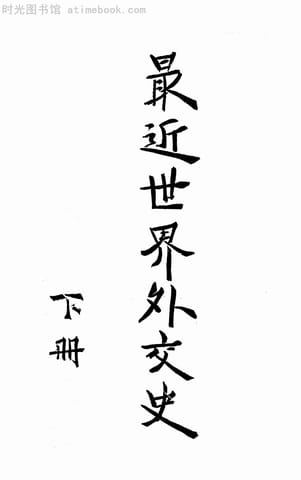 时光图书馆 atimebook.com
最近世界外交史
下册